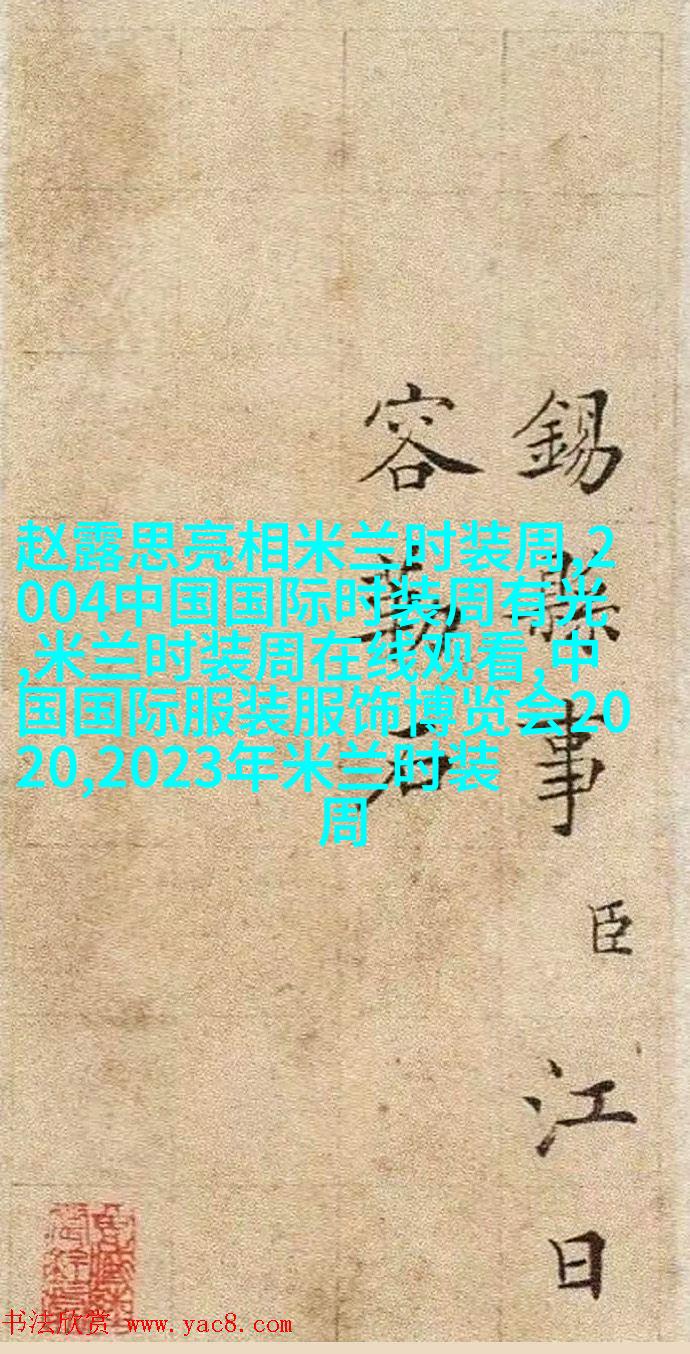 赵露思亮相米兰时装周,2
004中国国际时装周有光
,米兰时装周在线观看,中
国国际服装服饰博览会20
20,2023年米兰时装
周
錫縣事臣江日
容勒石
书法欣赏 www.yac8.com